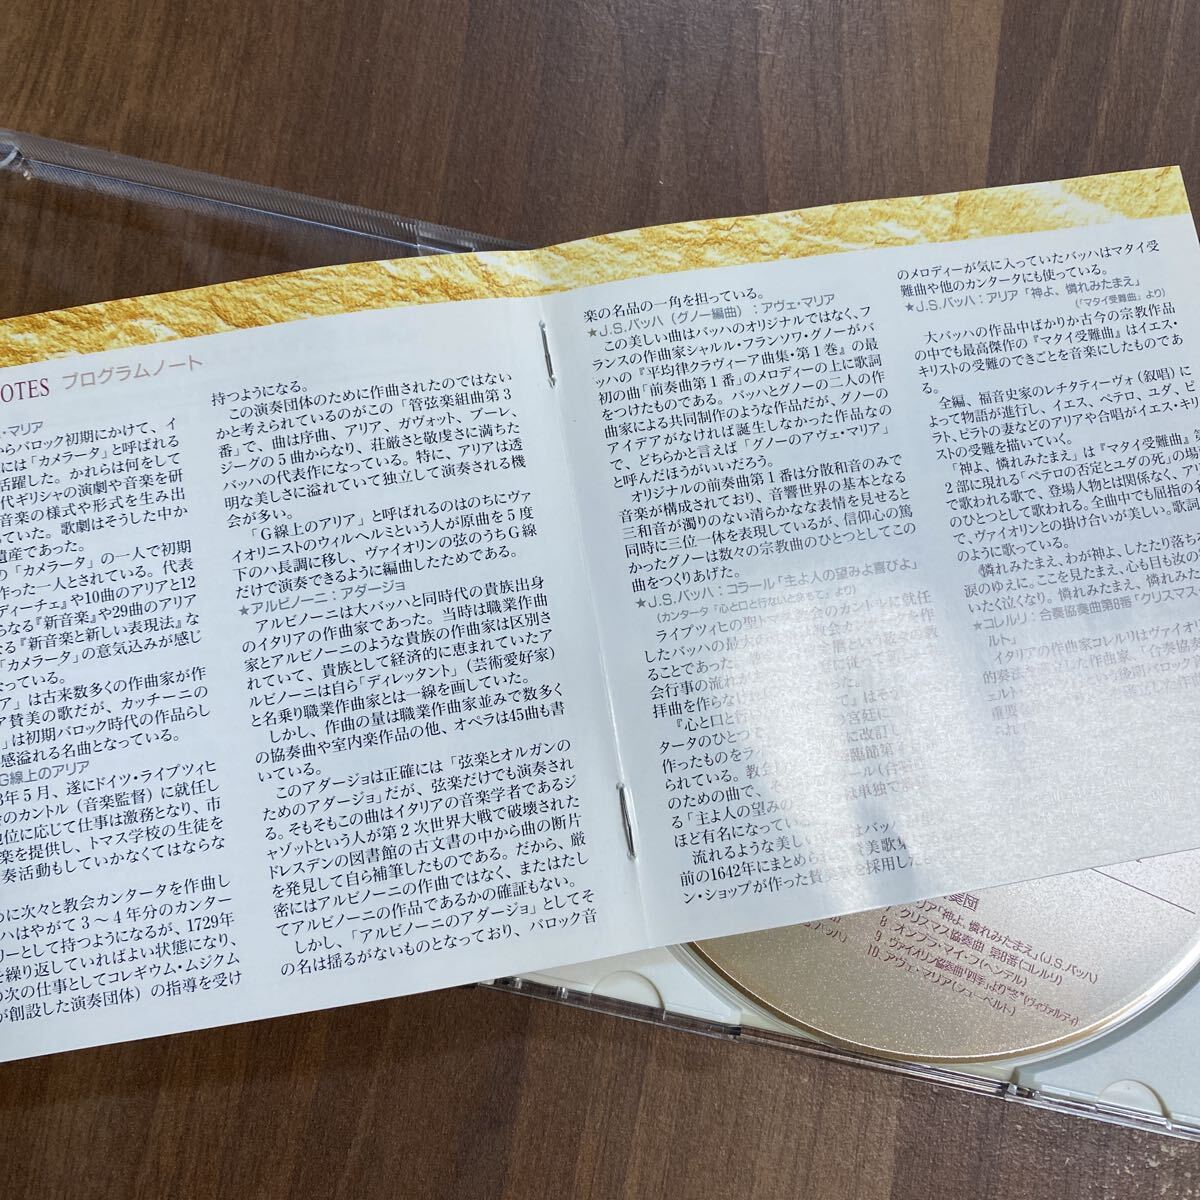 NOTES プログラムノート
・マリア
からバロック初期にかけて、イ
には「カメラータ」と呼ばれる
活躍した。かれらは何をして
代ギリシャの演劇や音楽を研
音楽の様式や形式を生み出
ていた。歌劇はそうした中か
遺産であった。
の「カメラータ」の一人で初期
作った一人とされている。代表
ディーチェ』や10曲のアリアと12
らなる『新音楽』や29曲のアリア
なる『新音楽と新しい表現法』な
「カメラータ」の意気込みが感じ
なっている。
ア」は古来数多くの作曲家が作
ア賛美の歌だが、カッチーニの
」は初期バロック時代の作品らし
感溢れる名曲となっている。
G線上のアリア
3年5月、遂にドイツ・ライプツィヒ
のカントル（音楽監督）に就任し
地位に応じて仕事は激務となり、市
楽を提供し、トマス学校の生徒を
奏活動もしていかなくてはならな
うに次々と教会カンタータを作曲し
ハはやがて3〜4年分のカンター
リーとして持つようになるが、1729年
を繰り返していればよい状態になり、
の次の仕事としてコレギウム・ムジクム
が創設した演奏団体）の指導を受け
持つようになる。
この演奏団体のために作曲されたのではない
かと考えられているのがこの「管弦楽組曲第3
番」で、曲は序曲、アリア、ガヴォット、ブーレ、
ジーグの5曲からなり、荘厳さと敬虔さに満ちた
バッハの代表作になっている。特に、アリアは透
明な美しさに溢れていて独立して演奏される機
会が多い。
「G線上のアリア」と呼ばれるのはのちにヴァ
イオリニストのウィルヘルミという人が原曲を5度
下のハ長調に移し、ヴァイオリンの弦のうちG線
だけで演奏できるように編曲したためである。
★アルビノーニ：アダージョ
アルビノーニは大バッハと同時代の貴族出身
のイタリアの作曲家であった。当時は職業作曲
家とアルビノーニのような貴族の作曲家は区別さ
れていて、貴族として経済的に恵まれていたア
ルビノーニは自ら「ディレッタント」（芸術愛好家）
と名乗り職業作曲家とは一線を画していた。
しかし、作曲の量は職業作曲家並みで数多く
の協奏曲や室内楽作品の他、オペラは45曲も書
いている。
このアダージョは正確には「弦楽とオルガンの
ためのアダージョ」だが、弦楽だけでも演奏され
る。そもそもこの曲はイタリアの音楽学者であるジ
ャゾットという人が第2次世界大戦で破壊された
ドレスデンの図書館の古文書の中から曲の断片
を発見して自ら補筆したものである。だから、厳
密にはアルビノーニの作曲ではなく、またはたし
てアルビノーニの作品であるかの確証もない。
しかし、「アルビノーニのアダージョ」としてそ
の名は揺るがないものとなっており、バロック音
楽の名品の一角を担っている。
★J.S.バッハ（グノー編曲）：アヴェ・マリア
この美しい曲はバッハのオリジナルではなく、フ
ランスの作曲家シャルル・フランソワ・グノーがバ
ッハの『平均律クラヴィーア曲集・第1巻』の最
初の曲「前奏曲第1番」のメロディーの上に歌詞
をつけたものである。バッハとグノーの二人の作
曲家による共同制作のような作品だが、グノーの
アイデアがなければ誕生しなかった作品なの
で、どちらかと言えば「グノーのアヴェ・マリア」
と呼んだほうがいいだろう。
オリジナルの前奏曲第1番は分散和音のみで
音楽が構成されており、音響世界の基本となる
三和音が濁りのない清らかな表情を見せると
同時に三位一体を表現しているが、信仰心の篤
かったグノーは数々の宗教曲のひとつとしてこの
曲をつくりあげた。
★J.S.バッハ：コラール「主よ人の望みよ喜びよ」
（カンタータ『心と口と行ないと生きざまもて』より）
ライプツィヒの聖トマス教会のカントルに就任
したバッハの最大
ることであった。
会行事の流れが
拝曲を作らなく
『心と口と行
タータのひとつ
作ったものをラ
られている。教会
のための曲で、そ
る「主よ人の望みの
ほど有名になってい
流れるような美しい
前の1642年にまとめら
ン・ショップが作った賛美歌を採用した。
のメロディーが気に入っていたバッハはマタイ受
難曲や他のカンタータにも使っている。
★J.S.バッハ：アリア「神よ、憐れみたまえ」
（「マタイ受難曲」より）
大バッハの作品中ばかりか古今の宗教作品
の中でも最高傑作の『マタイ受難曲』はイエス・
キリストの受難のできごとを音楽にしたものであ
る。
全編、福音史家のレチタティーヴォ（叙唱）に
よって物語が進行し、イエス、ペテロ、ユダ、ピ
ラト、ピラトの妻などのアリアや合唱がイエス・キリ
ストの受難を描いていく。
「神よ、憐れみたまえ」は『マタイ受難曲』第
2部に現れる「ペテロの否定とユダの死」の場
で歌われる歌で、登場人物とは関係なく、ア
のひとつとして歌われる。全曲中でも屈指の
で、ヴァイオリンとの掛け合いが美しい。歌詞
のように歌っている。
〈憐れみたまえ、わが神よ、したたり落ちる
涙のゆえに。ここを見たまえ、心も目も汝の
いたく泣くなり。憐れみたまえ、憐れみ
★コレルリ：合奏協奏曲第8番「クリスマス
イタリアの作曲家コレルリはヴァイオ
奏団
アリア「神よ、憐れみたまえ」(J.S.バッハ)
8 クリスマス協奏曲 第8番(コレルリ)
9 オンブラ・マイ・フ(ヘンデル)
ヴァイオリン協奏曲「四季」より“冬”(ヴィヴァルディ)
10. アヴェ・マリア(シューベルト)